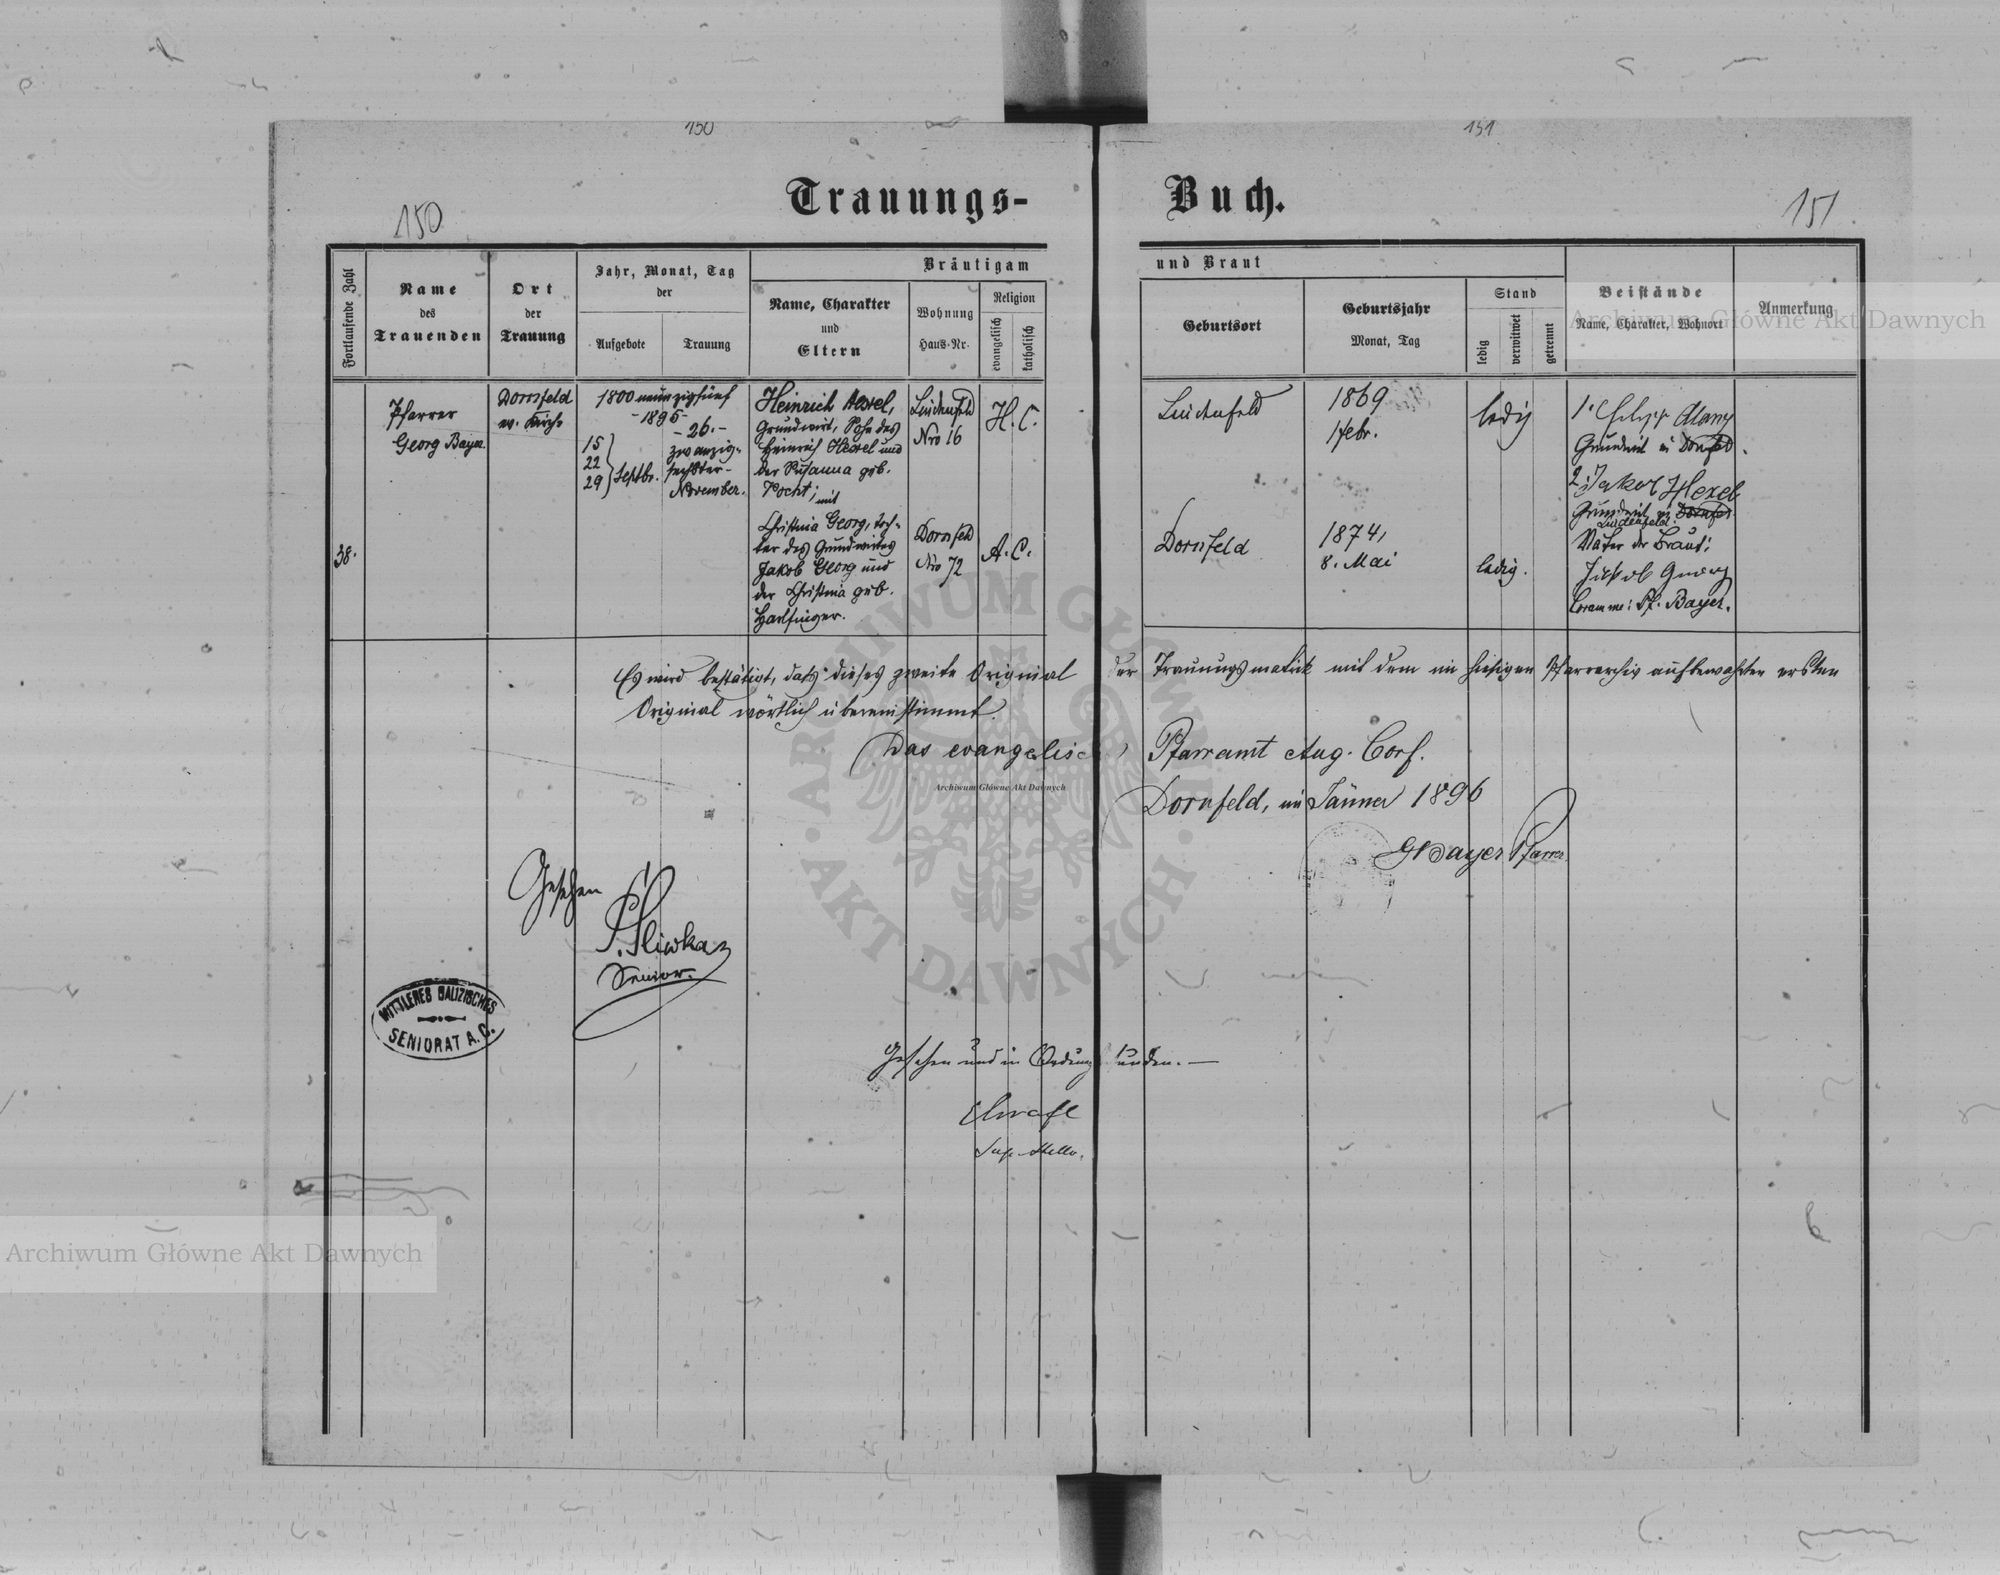 150
151
Trauungs-
Buch.
150
151
Fortlaufende Zahl
Name
des
Trauenden
Ort
der
Trauung
Jahr, Monat, Tag
der
Aufgebote
Trauung
Bräutigam
Name, Charakter
und
Eltern
Wohnung
Haus-Nr.
Religion
evangelisch
katholisch
und Braut
Geburtsort
Geburtsjahr
Monat, Tag
Stand
ledig
verwitwet
getrennt
Beistände
Name, Charakter, Wohnort
Anmerkung
38.
Pfarrer
Georg Bayer.
Dornfeld
ev. Kirche
1800 neunzigfünf
- 1895 -
15
22
29
Septbr.
- 26. -
zwanzig-
sechster -
November.
Heinrich Hexel,
Grundwirt, Sohn des
Heinrich Hexel und
der Susanna geb.
mit
Christina Georg, Toch-
ter des Grundwirtes
Jakob Georg und
der Christina geb.
Harfinger.
Lindenfeld
Nro 16
Dornfeld
Nro 72
H. C.
A. C.
Lindenfeld
1869
1 febr.
ledig
Dornfeld
1874,
8. Mai
ledig.
1.
Grundwirt in Dornfeld.
2. Jakob Hexel
Grundwirt in Dornfeld
Lindenfeld.
Vater der Braut:
Jakob Georg
Coram me: Pf. Bayer.
Es wird bestätigt, daß dieses zweite Original der Trauungsmatrik mit dem im hiesigen Pfarrarchiv aufbewahrten ersten
Original wörtlich übereinstimmt.
Das evangelische Pfarramt Aug. Conf.
Dornfeld, im Jänner 1896
GBayer Pfarrer
Gesehen
Sliwka
Senior.
MITTLERES GALIZISCHES
SENIORAT A. C.
Gesehen und in Ordnung befunden. —
ARCHIWUM GŁÓWNE
AKT DAWNYCH
Archiwum Główne Akt Dawnych
Archiwum Główne Akt Dawnych
Archiwum Główne Akt Dawnych